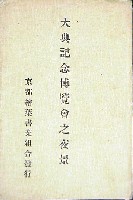 大典記念博覽會之夜景
京都繪葉書商組合發行